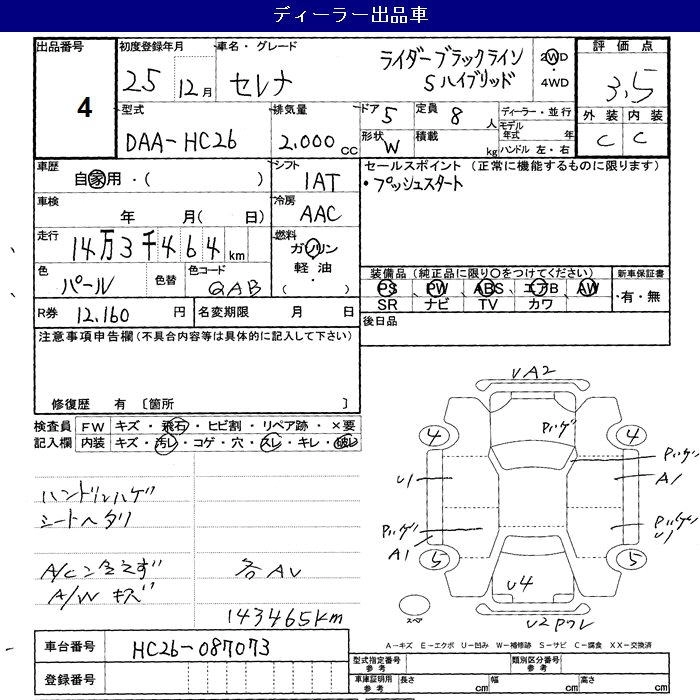 ディーラー出品車
出品番号
4
初度登録年月
25 12月
車名・グレード
セレナ
ライダーブラックライン
Sハイブリッド
2WD
・
4WD
評価点
3.5
外装 内装
C C
型式
DAA-HC26
排気量
2.000 cc
ドア 5
定員 8 人
形状 W
積載 kg
ディーラー・並行
モデル年式 年
ハンドル 左・右
車歴
自家用・( )
シフト
IAT
セールスポイント (正常に機能するものに限ります)
・プッシュスタート
車検
年 月( 日)
冷房
AAC
走行
14万3千464km
燃料
ガソリン
軽油・
( )
色
パール
色替
色コード
QAB
装備品(純正品に限り○をつけてください)
PS、PW、ABS、エアB、AW
SR ナビ TV カワ
新車保証書
・有・無
R券 12.160 円
名変期限 月 日
後日品
注意事項申告欄(不具合内容等は具体的に記入して下さい)
修復歴 有 〔箇所 〕
検査員記入欄
FW キズ・飛石・ヒビ割・リペア跡・×要
内装 キズ・汚レ・コゲ・穴・スレ・キレ・破レ
ハンドルハゲ
シートヘタリ
A/Cンきえず
各AU
A/W キズ
143465km
UA2
Pハゲ
4
4
Pハゲ
U1
A1
Pハゲ
Pハゲ
U1
A1
5
5
U4
スペア
U2Pワレ
A-キズ E-エクボ U-凹み W-補修跡 S-サビ C-腐食 XX-交換済
車台番号
HC26-087073
登録番号
型式指定番号 参考
類別区分番号 参考
車庫証明用 参考
長さ cm
幅 cm
高さ cm